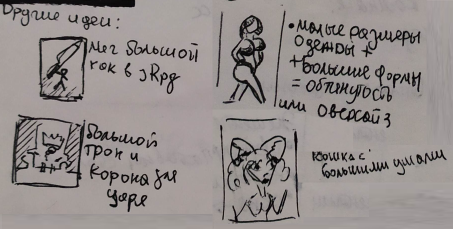 Другие идеи:
Меч большой
как в jRpg
• малые размеры
одежды +
+ большие формы
= обтянутость
или оверсайз
Большой
трон и
корона для
царя
кошка с
большими ушами